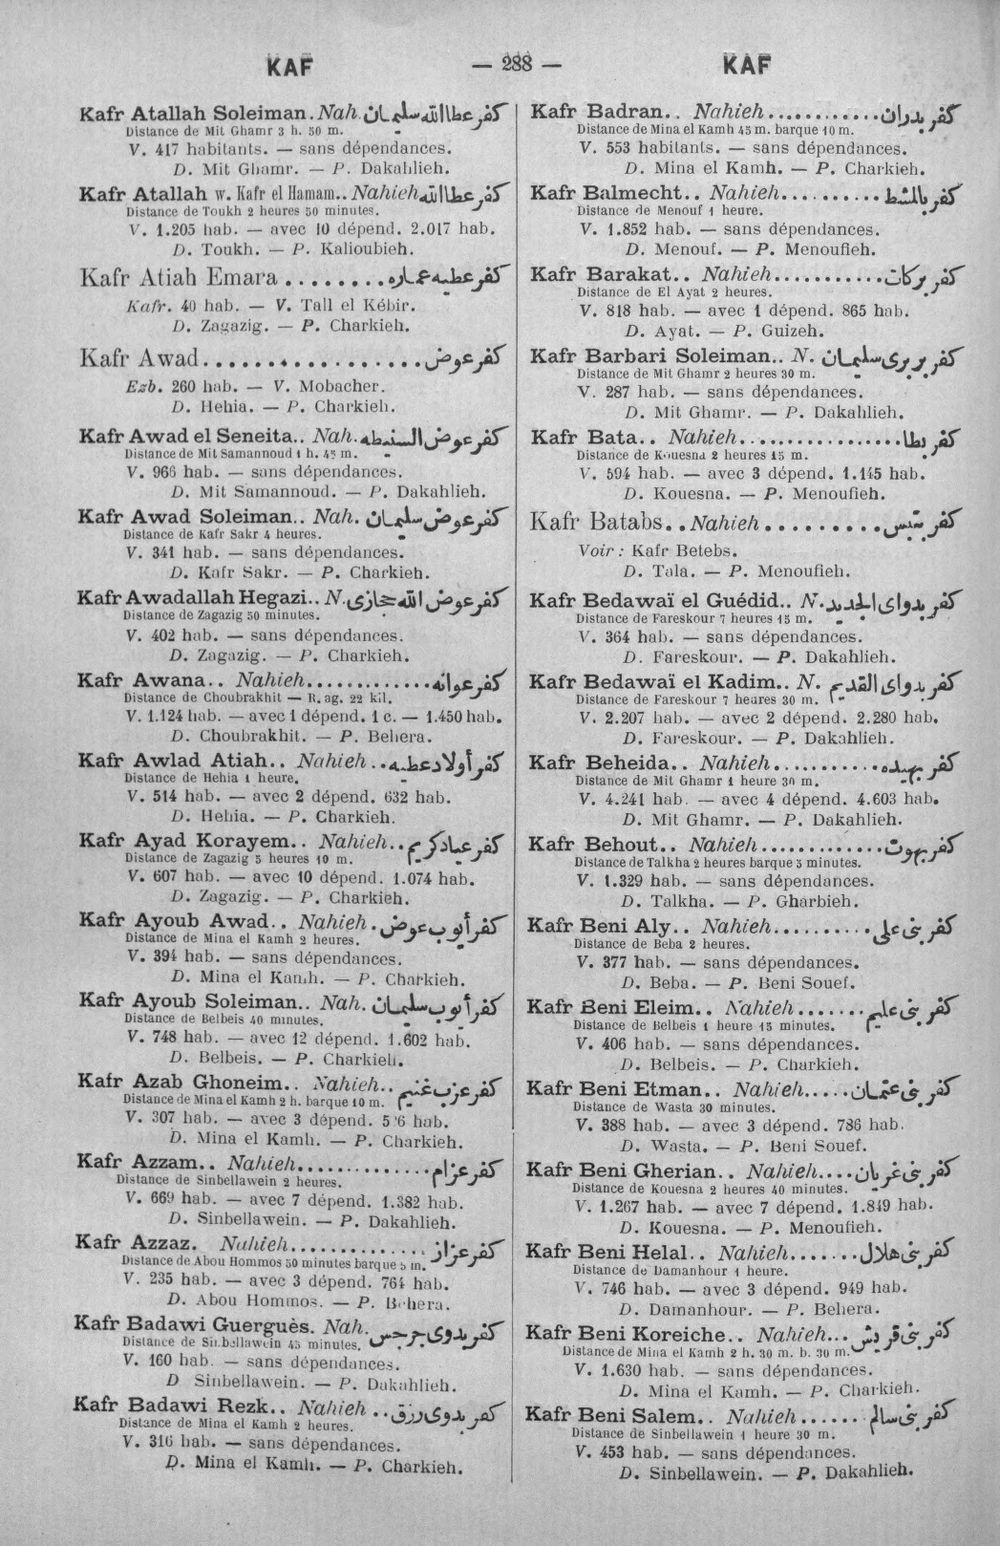 KAF — 288 — KAF
Kafr Atallah Soleiman. Nah. كفر عطاالله سليمان
Distance de Mit Ghamr 3 h. 50 m.
V. 417 habitants. — sans dépendances.
D. Mit Ghamr. — P. Dakahlieh.
Kafr Atallah w. Kafr el Hamam.. Nahieh كفر عطاالله
Distance de Toukh 2 heures 50 minutes.
V. 1.205 hab. — avec 10 dépend. 2.017 hab.
D. Toukh. — P. Kalioubieh.
Kafr Atiah Emara ........ كفر عطيه عماره
Kafr. 40 hab. — V. Tall el Kébir.
D. Zagazig. — P. Charkieh.
Kafr Awad................. كفر عوض
Ezb. 260 hab. — V. Mobacher.
D. Hehia. — P. Charkieh.
Kafr Awad el Seneita.. Nah. كفر عوض السنيطه
Distance de Mit Samannoud 1 h. 45 m.
V. 966 hab. — sans dépendances.
D. Mit Samannoud. — P. Dakahlieh.
Kafr Awad Soleiman.. Nah. كفر عوض سليمان
Distance de Kafr Sakr 4 heures.
V. 341 hab. — sans dépendances.
D. Kafr Sakr. — P. Charkieh.
Kafr Awadallah Hegazi.. N. كفر عوض الله حجازى
Distance de Zagazig 50 minutes.
V. 402 hab. — sans dépendances.
D. Zagazig. — P. Charkieh.
Kafr Awana.. Nahieh............. كفر عوانه
Distance de Choubrakhit — R. ag. 22 kil.
V. 1.124 hab. — avec 1 dépend. 1 c. — 1.450 hab.
D. Choubrakhit. — P. Behera.
Kafr Awlad Atiah.. Nahieh.. كفر أولاد عطيه
Distance de Hehia 1 heure.
V. 514 hab. — avec 2 dépend. 632 hab.
D. Hehia. — P. Charkieh.
Kafr Ayad Korayem.. Nahieh.. كفر عياد كريم
Distance de Zagazig 5 heures 10 m.
V. 607 hab. — avec 10 dépend. 1.074 hab.
D. Zagazig. — P. Charkieh.
Kafr Ayoub Awad.. Nahieh. كفر أيوب عوض
Distance de Mina el Kamh 2 heures.
V. 394 hab. — sans dépendances.
D. Mina el Kamh. — P. Charkieh.
Kafr Ayoub Soleiman.. Nah. كفر أيوب سليمان
Distance de Belbeis 40 minutes.
V. 748 hab. — avec 12 dépend. 1.602 hab.
D. Belbeis. — P. Charkieh.
Kafr Azab Ghoneim.. Nahieh.. كفر عزب غنيم
Distance de Mina el Kamh 2 h. barque 10 m.
V. 307 hab. — avec 3 dépend. hab.
D. Mina el Kamh. — P. Charkieh.
Kafr Azzam.. Nahieh.............. كفر عزام
Distance de Sinbellawein 2 heures.
V. 669 hab. — avec 7 dépend. 1.382 hab.
D. Sinbellawein. — P. Dakahlieh.
Kafr Azzaz. Nahieh.............. كفر عزاز
Distance de Abou Hommos 50 minutes barque 5 m.
V. 235 hab. — avec 3 dépend. 764 hab.
D. Abou Hommos. — P. Behera.
Kafr Badawi Guerguès. Nah. كفر بدوى جرجس
Distance de Sinbellawein 45 minutes.
V. 160 hab. — sans dépendances.
D Sinbellawein. — P. Dakahlieh.
Kafr Badawi Rezk.. Nahieh .. كفر بدوى رزق
Distance de Mina el Kamh 2 heures.
V. 316 hab. — sans dépendances.
D. Mina el Kamh. — P. Charkieh.
Kafr Badran.. Nahieh............ كفر بدران
Distance de Mina el Kamh 45 m. barque 10 m.
V. 553 habitants. — sans dépendances.
D. Mina el Kamh. — P. Charkieh.
Kafr Balmecht.. Nahieh.......... كفر بالمشط
Distance de Menouf 1 heure.
V. 1.852 hab. — sans dépendances.
D. Menouf. — P. Menoufieh.
Kafr Barakat.. Nahieh........... كفر بركات
Distance de El Ayat 2 heures.
V. 818 hab. — avec 1 dépend. 865 hab.
D. Ayat. — P. Guizeh.
Kafr Barbari Soleiman.. N. كفر بربرى سليمان
Distance de Mit Ghamr 2 heures 30 m.
V. 287 hab. — sans dépendances.
D. Mit Ghamr. — P. Dakahlieh.
Kafr Bata.. Nahieh................. كفر بطا
Distance de Kouesna 2 heures 15 m.
V. 594 hab. — avec 3 dépend. 1.145 hab.
D. Kouesna. — P. Menoufieh.
Kafr Batabs.. Nahieh......... كفر بتبس
Voir : Kafr Betebs.
D. Tala. — P. Menoufieh.
Kafr Bedawaï el Guédid.. N. كفر بدواى الجديد
Distance de Fareskour 7 heures 15 m.
V. 364 hab. — sans dépendances.
D. Fareskour. — P. Dakahlieh.
Kafr Bedawaï el Kadim.. N. كفر بدواى القديم
Distance de Fareskour 7 heures 30 m.
V. 2.207 hab. — avec 2 dépend. 2.280 hab.
D. Fareskour. — P. Dakahlieh.
Kafr Beheida.. Nahieh........... كفر بهيده
Distance de Mit Ghamr 1 heure 30 m.
V. 4.241 hab. — avec 4 dépend. 4.603 hab.
D. Mit Ghamr. — P. Dakahlieh.
Kafr Behout.. Nahieh............ كفر بهوت
Distance de Talkha 2 heures barque 5 minutes.
V. 1.329 hab. — sans dépendances.
D. Talkha. — P. Gharbieh.
Kafr Beni Aly.. Nahieh.......... كفر بنى على
Distance de Beba 2 heures.
V. 377 hab. — sans dépendances.
D. Beba. — P. Beni Souef.
Kafr Beni Eleim.. Nahieh....... كفر بنى عليم
Distance de Belbeis 1 heure 15 minutes.
V. 406 hab. — sans dépendances.
D. Belbeis. — P. Charkieh.
Kafr Beni Etman.. Nahieh..... كفر بنى عتمان
Distance de Wasta 30 minutes.
V. 388 hab. — avec 3 dépend. 786 hab.
D. Wasta. — P. Beni Souef.
Kafr Beni Gherian.. Nahieh.... كفر بنى غريان
Distance de Kouesna 2 heures 40 minutes.
V. 1.267 hab. — avec 7 dépend. 1.849 hab.
D. Kouesna. — P. Menoufieh.
Kafr Beni Helal.. Nahieh....... كفر بنى هلال
Distance de Damanhour 1 heure.
V. 746 hab. — avec 3 dépend. 949 hab.
D. Damanhour. — P. Behera.
Kafr Beni Koreiche.. Nahieh... كفر بنى قريش
Distance de Mina el Kamh 2 h. 30 m. b. 30 m.
V. 1.630 hab. — sans dépendances.
D. Mina el Kamh. — P. Charkieh.
Kafr Beni Salem.. Nahieh...... كفر بنى سالم
Distance de Sinbellawein 1 heure 30 m.
V. 453 hab. — sans dépendances.
D. Sinbellawein. — P. Dakahlieh.